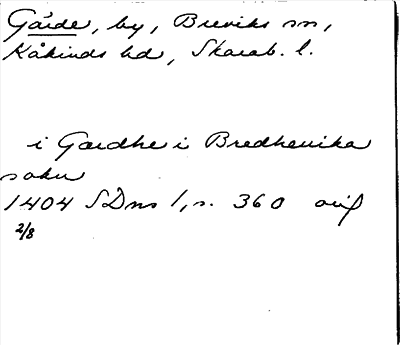 Gärde, by, Breviks sn,
Kåkinds hd, Skarab. l.
i Gardhe i Bredhevika
sokn
1404 SDns 1, s. 360 avs
2/8